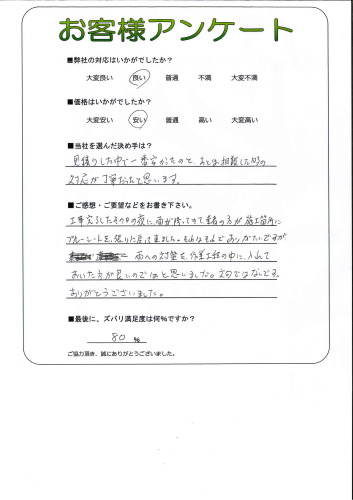 お客様アンケート
■弊社の対応はいかがでしたか？
大変良い 良い 普通 不満 大変不満
■価格はいかがでしたか？
大変安い 安い 普通 高い 大変高い
■当社を選んだ決め手は？
見積りした中で一番安かったのと、あとは相談した時の
対応が丁寧だったと思います。
■ご感想・ご要望などをお書き下さい。
工事完了したその日の夜に、雨が降ってきて業者の方が施工箇所に
ブルーシートを張りに戻って来ました。それはそれでありがたいですが
雨への対策を、作業工程の中に、入れて
おいた方が良いのではと思いました。文句ではないです。
ありがとうございました。
■最後に、ズバリ満足度は何％ですか？
80 %
ご協力頂き、誠にありがとうございました。